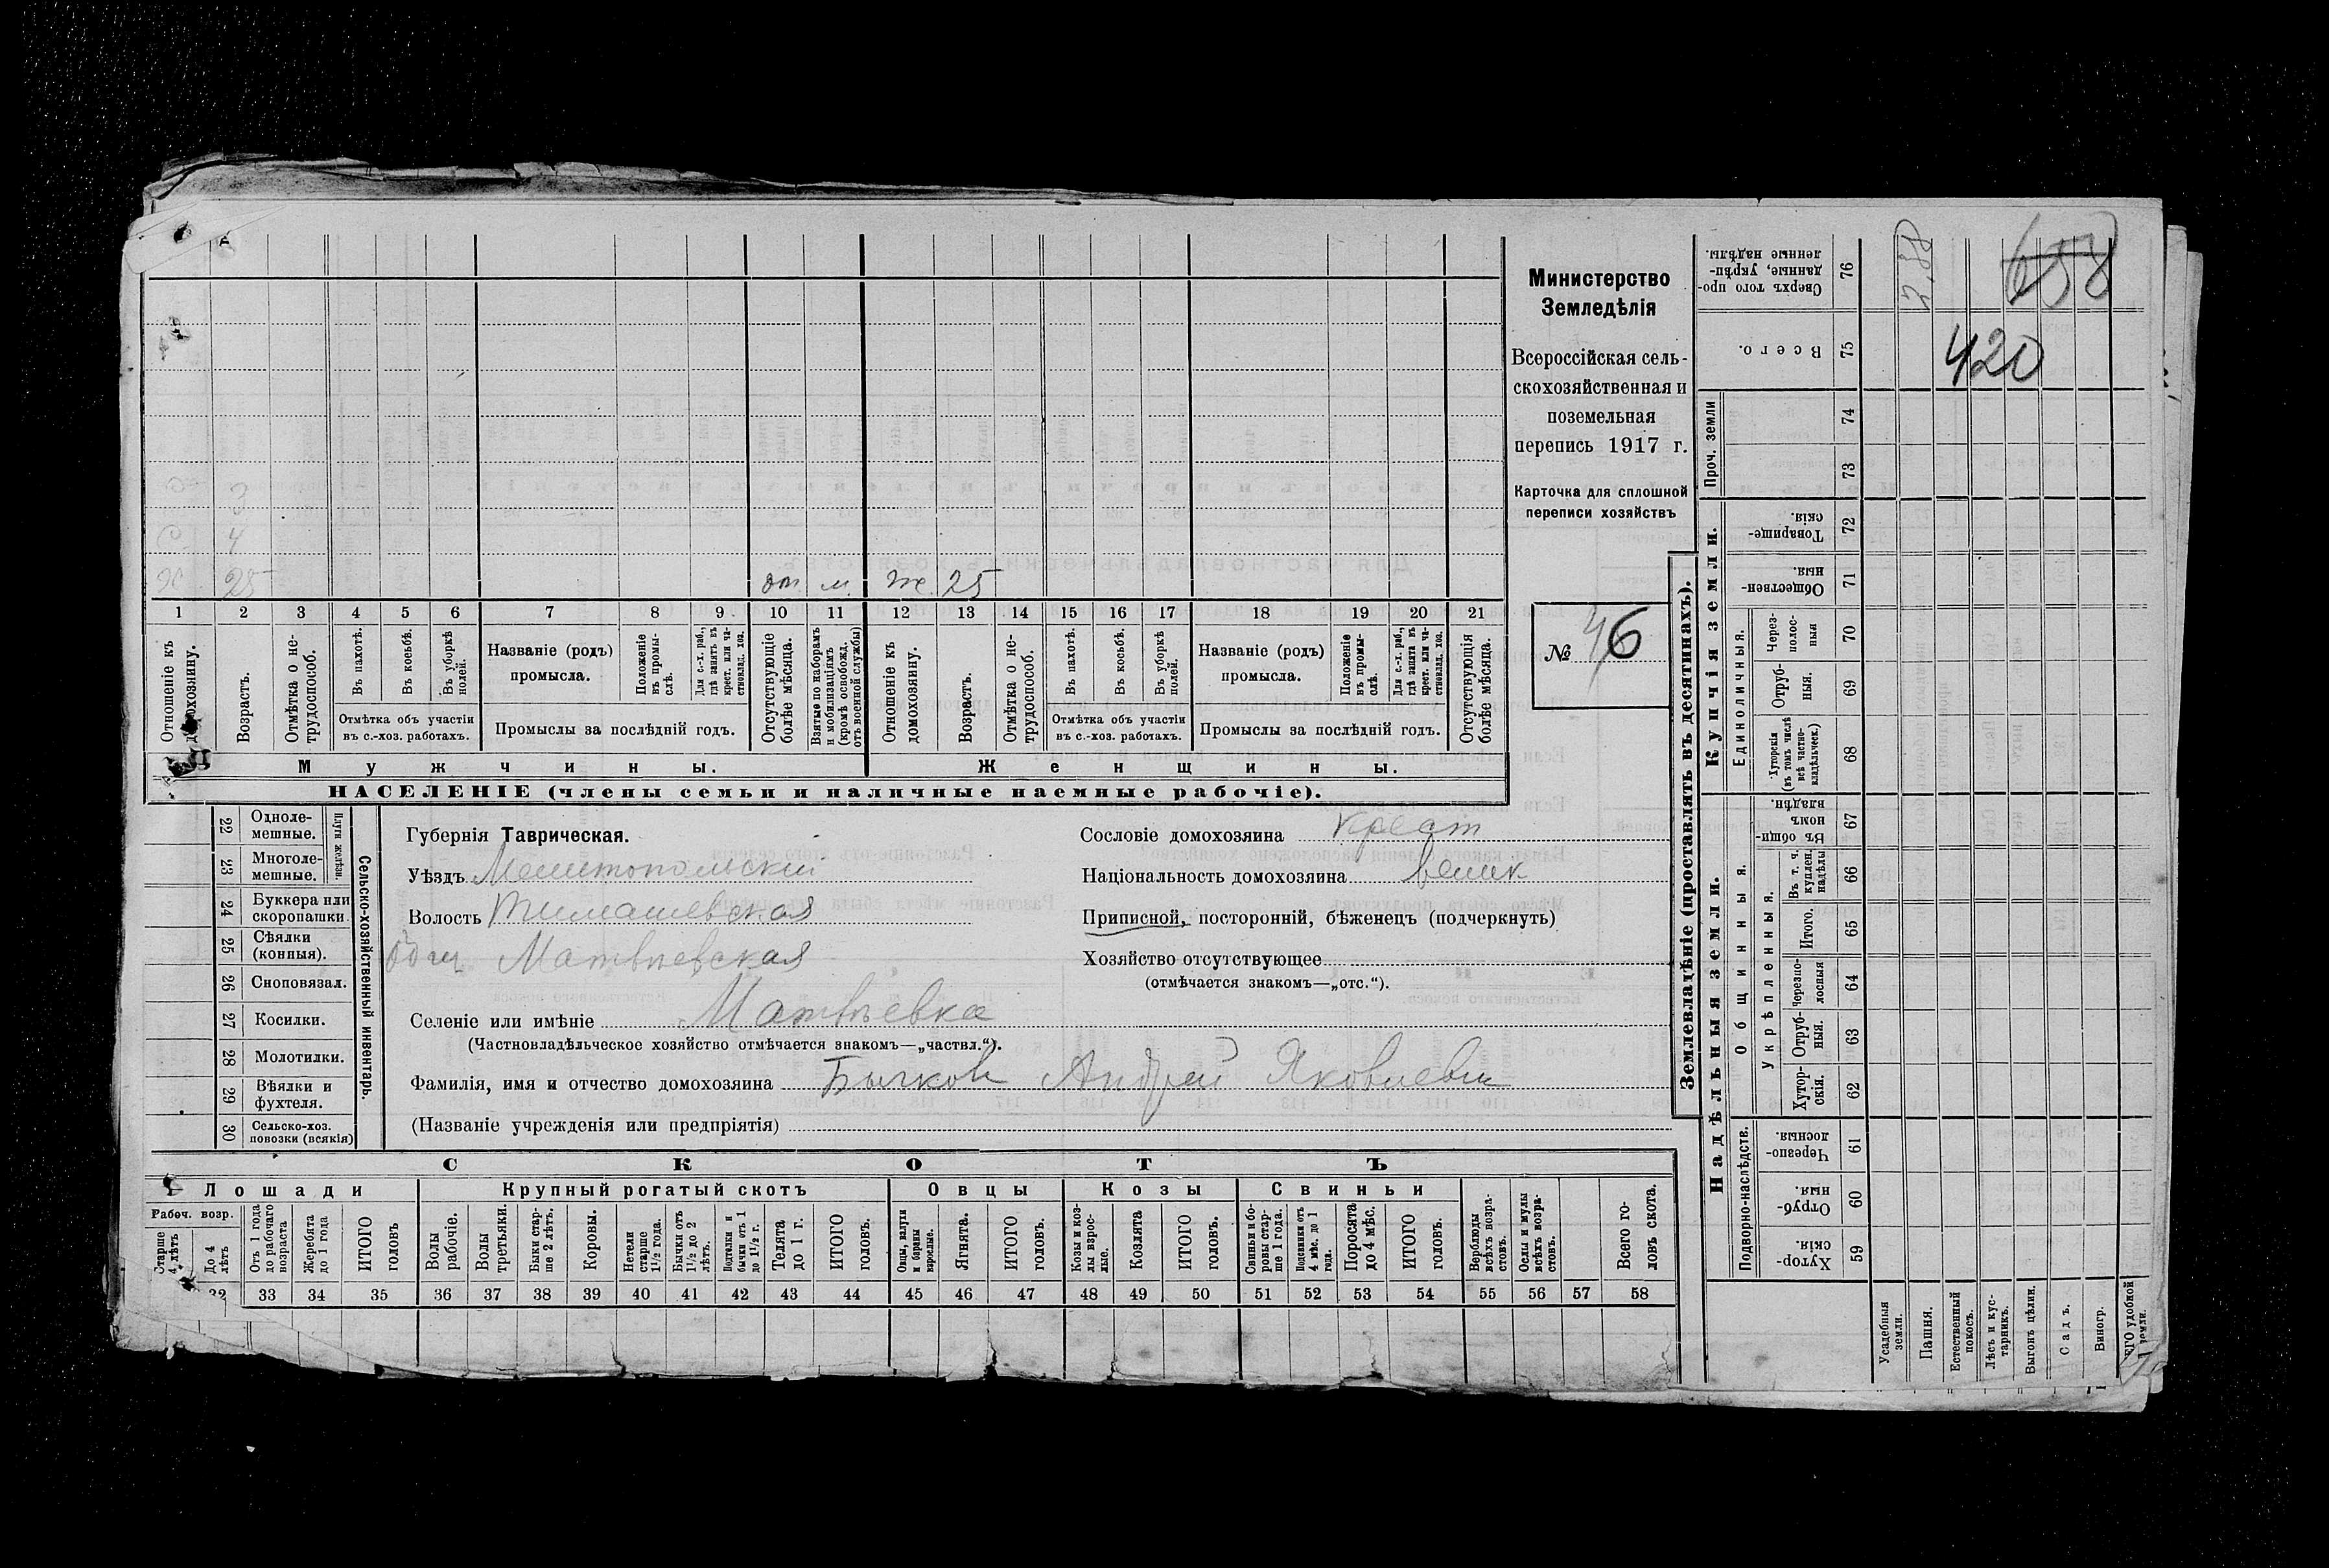 Министерство
Земледѣлія
Всероссійская сель-
скохозяйственная и
поземельная
перепись 1917 г.
Карточка для сплошной
переписи хозяйствъ
№ 46
3
4
25
от. м. ж. 25
1 2 3 4 5 6 7 8 9 10 11 12 13 14 15 16 17 18 19 20 21
Отношеніе къ домохозяину.
Возрастъ.
Отмѣтка о не-
трудоспособ.
Въ пахотѣ.
Въ косьбѣ.
Въ уборкѣ
полей.
Отмѣтка объ участіи
въ с.-хоз. работахъ.
Названіе (родъ)
промысла.
Положеніе
въ промы-
слѣ.
Для с.-х. раб.,
гдѣ занятъ въ
крест. или ча-
стновлад. хоз.
Промыслы за послѣдній годъ.
Отсутствующіе
болѣе мѣсяца.
Взятые по наборамъ
и мобилизаціямъ
(кромѣ освобожд.
отъ военной службы)
Отношеніе къ
домохозяину.
Возрастъ.
Отмѣтка о не-
трудоспособ.
Въ пахотѣ.
Въ косьбѣ.
Въ уборкѣ
полей.
Отмѣтка объ участіи
въ с.-хоз. работахъ.
Названіе (родъ)
промысла.
Положеніе
въ промы-
слѣ.
Для с.-х. раб.,
гдѣ занята въ
крест. или ча-
стновлад. хоз.
Промыслы за послѣдній годъ.
Отсутствующія
болѣе мѣсяца.
Мужчины.
Женщины.
НАСЕЛЕНІЕ (члены семьи и наличные наемные рабочіе).
22 Одноле-
мешные.
23 Многоле-
мешные.
Плуги желѣзн.
24 Буккера или
скоропашки.
25 Сѣялки
(конныя).
26 Сноповязал.
27 Косилки.
28 Молотилки.
29 Вѣялки и
фухтеля.
30 Сельско-хоз.
повозки (всякія)
Сельско-хозяйственный инвентарь.
Губернія Таврическая.
Уѣздъ Мелитопольскій
Волость Тимашевская
Общ Матвѣевская
Селеніе или имѣніе Матвѣевка
(Частновладѣльческое хозяйство отмѣчается знакомъ—„частвл.“).
Фамилія, имя и отчество домохозяина Бычков Андрей Яковлевич
(Названіе учрежденія или предпріятія)
Сословіе домохозяина крест
Національность домохозяина велик
Приписной, посторонній, бѣженецъ (подчеркнуть)
Хозяйство отсутствующее
(отмѣчается знакомъ—„отс.“).
СКОТЪ
Лошади
Крупный рогатый скотъ
Овцы
Козы
Свиньи
Рабоч. возр.
Старше
4 лѣтъ
До 4
лѣтъ
Отъ 1 года
до рабочаго
возраста
Жеребята
до 1 года
ИТОГО
головъ
Волы
рабочіе.
Волы
третьяки.
Быки стар-
ше 2 лѣтъ.
Коровы.
Нетели
старше
1½ года.
Бычки отъ
1½ до 2
лѣтъ.
Подтелки и
бычки отъ 1
до 1½ г.
Телята
до 1 г.
ИТОГО
головъ.
Овцы, валухи
и бараны
взрослые.
Ягнята.
ИТОГО
головъ.
Козы и коз-
лы взрос-
лые.
Козлята
ИТОГО
головъ.
Свиньи и бо-
ровы стар-
ше 1 года.
Подсвинки отъ
4 мѣс. до 1
года.
Поросята
до 4 мѣс.
ИТОГО
головъ.
Верблюды
всѣхъ возра-
стовъ.
Ослы и мулы
всѣхъ возра-
стовъ.
Всего го-
ловъ скота.
32 33 34 35 36 37 38 39 40 41 42 43 44 45 46 47 48 49 50 51 52 53 54 55 56 57 58
Землевладѣніе (проставлять въ десятинахъ).
Надѣльныя земли.
Купчія земли.
Проч. земли
Подворно-наслѣдств.
Общинныя.
Укрѣпленныя.
Единоличныя.
Сверхъ того про-
данные, укрѣп-
ленные надѣлы. 76
Всего. 75
74
73
Товарище-
скія. 72
Обществен-
ныя. 71
Через-
полос-
ныя 70
Отруб-
ныя. 69
Хуторскія
(въ томъ числѣ
всѣ частно-
владѣльческ.) 68
Въ общи-
номъ
владѣн. 67
Въ т. ч.
куплен.
надѣлы 66
Итого. 65
Черезпо-
лосныя 64
Отруб-
ныя. 63
Хутор-
скія. 62
Черезпо-
лосныя. 61
Отруб-
ныя. 60
Хутор-
скія. 59
Усадебныя
земли.
Пашня.
Естественный
покосъ.
Лѣсъ и кус-
тарникъ.
Выгонъ цѣлин.
Садъ.
Виногр.
удобной
земли.
2,88
658
420